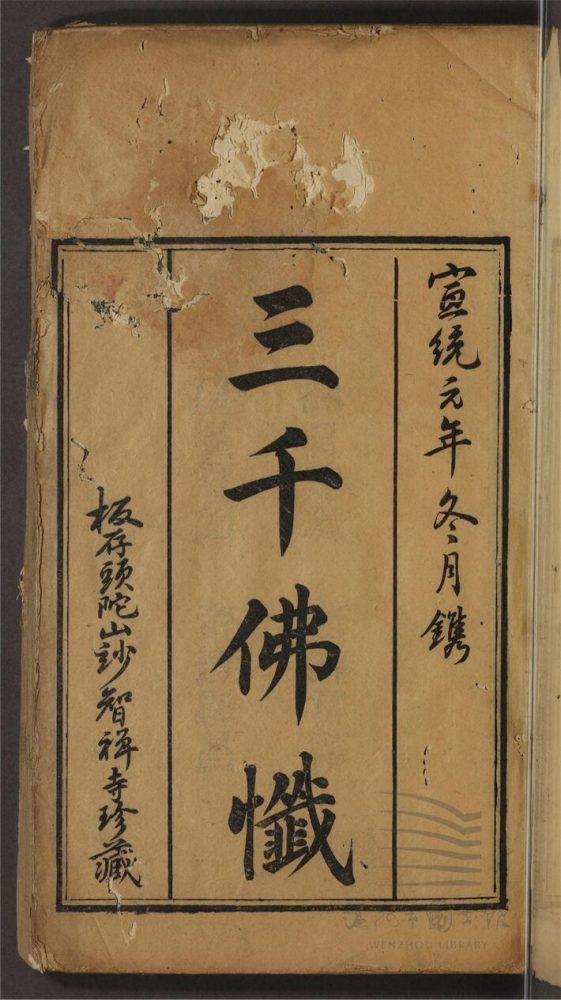 宣統元年冬月鐫
三千佛懺
板存頭陀山玅智禅寺珍藏
温州市图书馆
WENZHOU LIBRARY